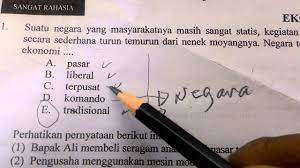 SANGAT RAHASIA
EK
1. Suatu negara yang masyarakatnya masih sangat statis, kegiatan
secara sederhana turun temurun dari nenek moyangnya. Negara te
ekonomi ....
A. pasar
B. liberal
C. terpusat
D. komando
E. tradisional
Negara
Perhatikan pernyataan berikut ini
(1) Bapak Ali membeli seragam pasar t
(2) Pengusaha menggunakan mesin mo